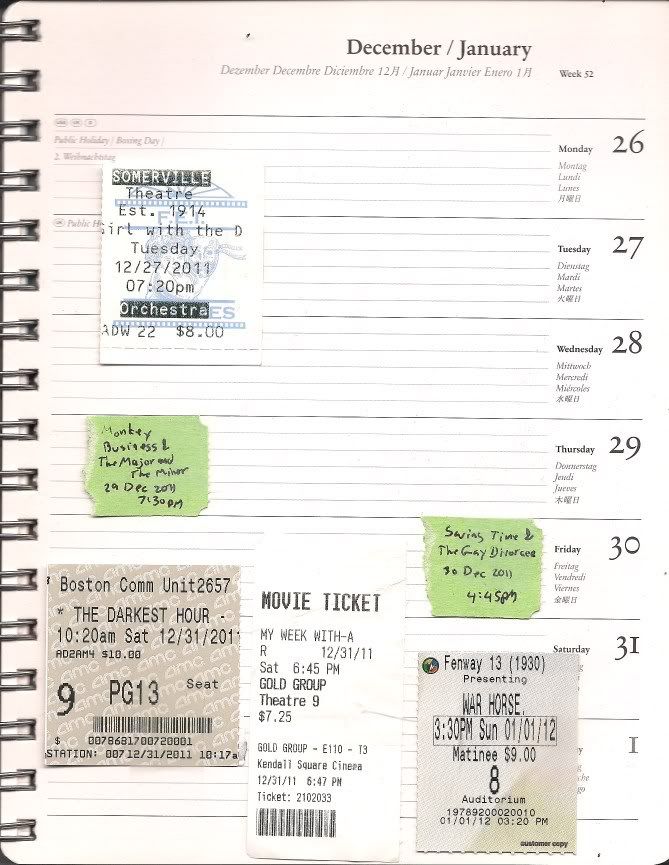 December / January
Dezember Decembre Diciembre 12月 / Januar Janvier Enero 1月
Week 52
Public Holiday / Boxing Day /
2. Weihnachtstag
Monday 26
Montag
Lundi
Lunes
月曜日
Public H
Tuesday 27
Dienstag
Mardi
Martes
火曜日
Wednesday 28
Mittwoch
Mercredi
Miércoles
水曜日
Thursday 29
Donnerstag
Jeudi
Jueves
木曜日
Friday 30
Freitag
Vendredi
Viernes
金曜日
Saturday 31
1
SOMERVILLE
Theatre
Est. 1914
irl with the D
Tuesday
12/27/2011
07:20pm
Orchestra
ADW 22 $8.00
Monkey
Business &
The Major and
The Minor
29 Dec 2011
7:30pm
Saving Time &
The Gay Divorcee
30 Dec 2011
4:45pm
Boston Comm Unit2657
* THE DARKEST HOUR -
10:20am Sat 12/31/2011
AD2AM4 $10.00
9 PG13 Seat
$ 0078681700720001
STATION: 007 12/31/2011 10:17a
MOVIE TICKET
MY WEEK WITH-A
R 12/31/11
Sat 6:45 PM
GOLD GROUP
Theatre 9
$7.25
GOLD GROUP - E110 - T3
Kendall Square Cinema
12/31/11 6:47 PM
Ticket: 2102033
Fenway 13 (1930)
Presenting
WAR HORSE.
3:30PM Sun 01/01/12
Matinee $9.00
8
Auditorium
19789200020010
01/01/12 03:20 PM
customer copy